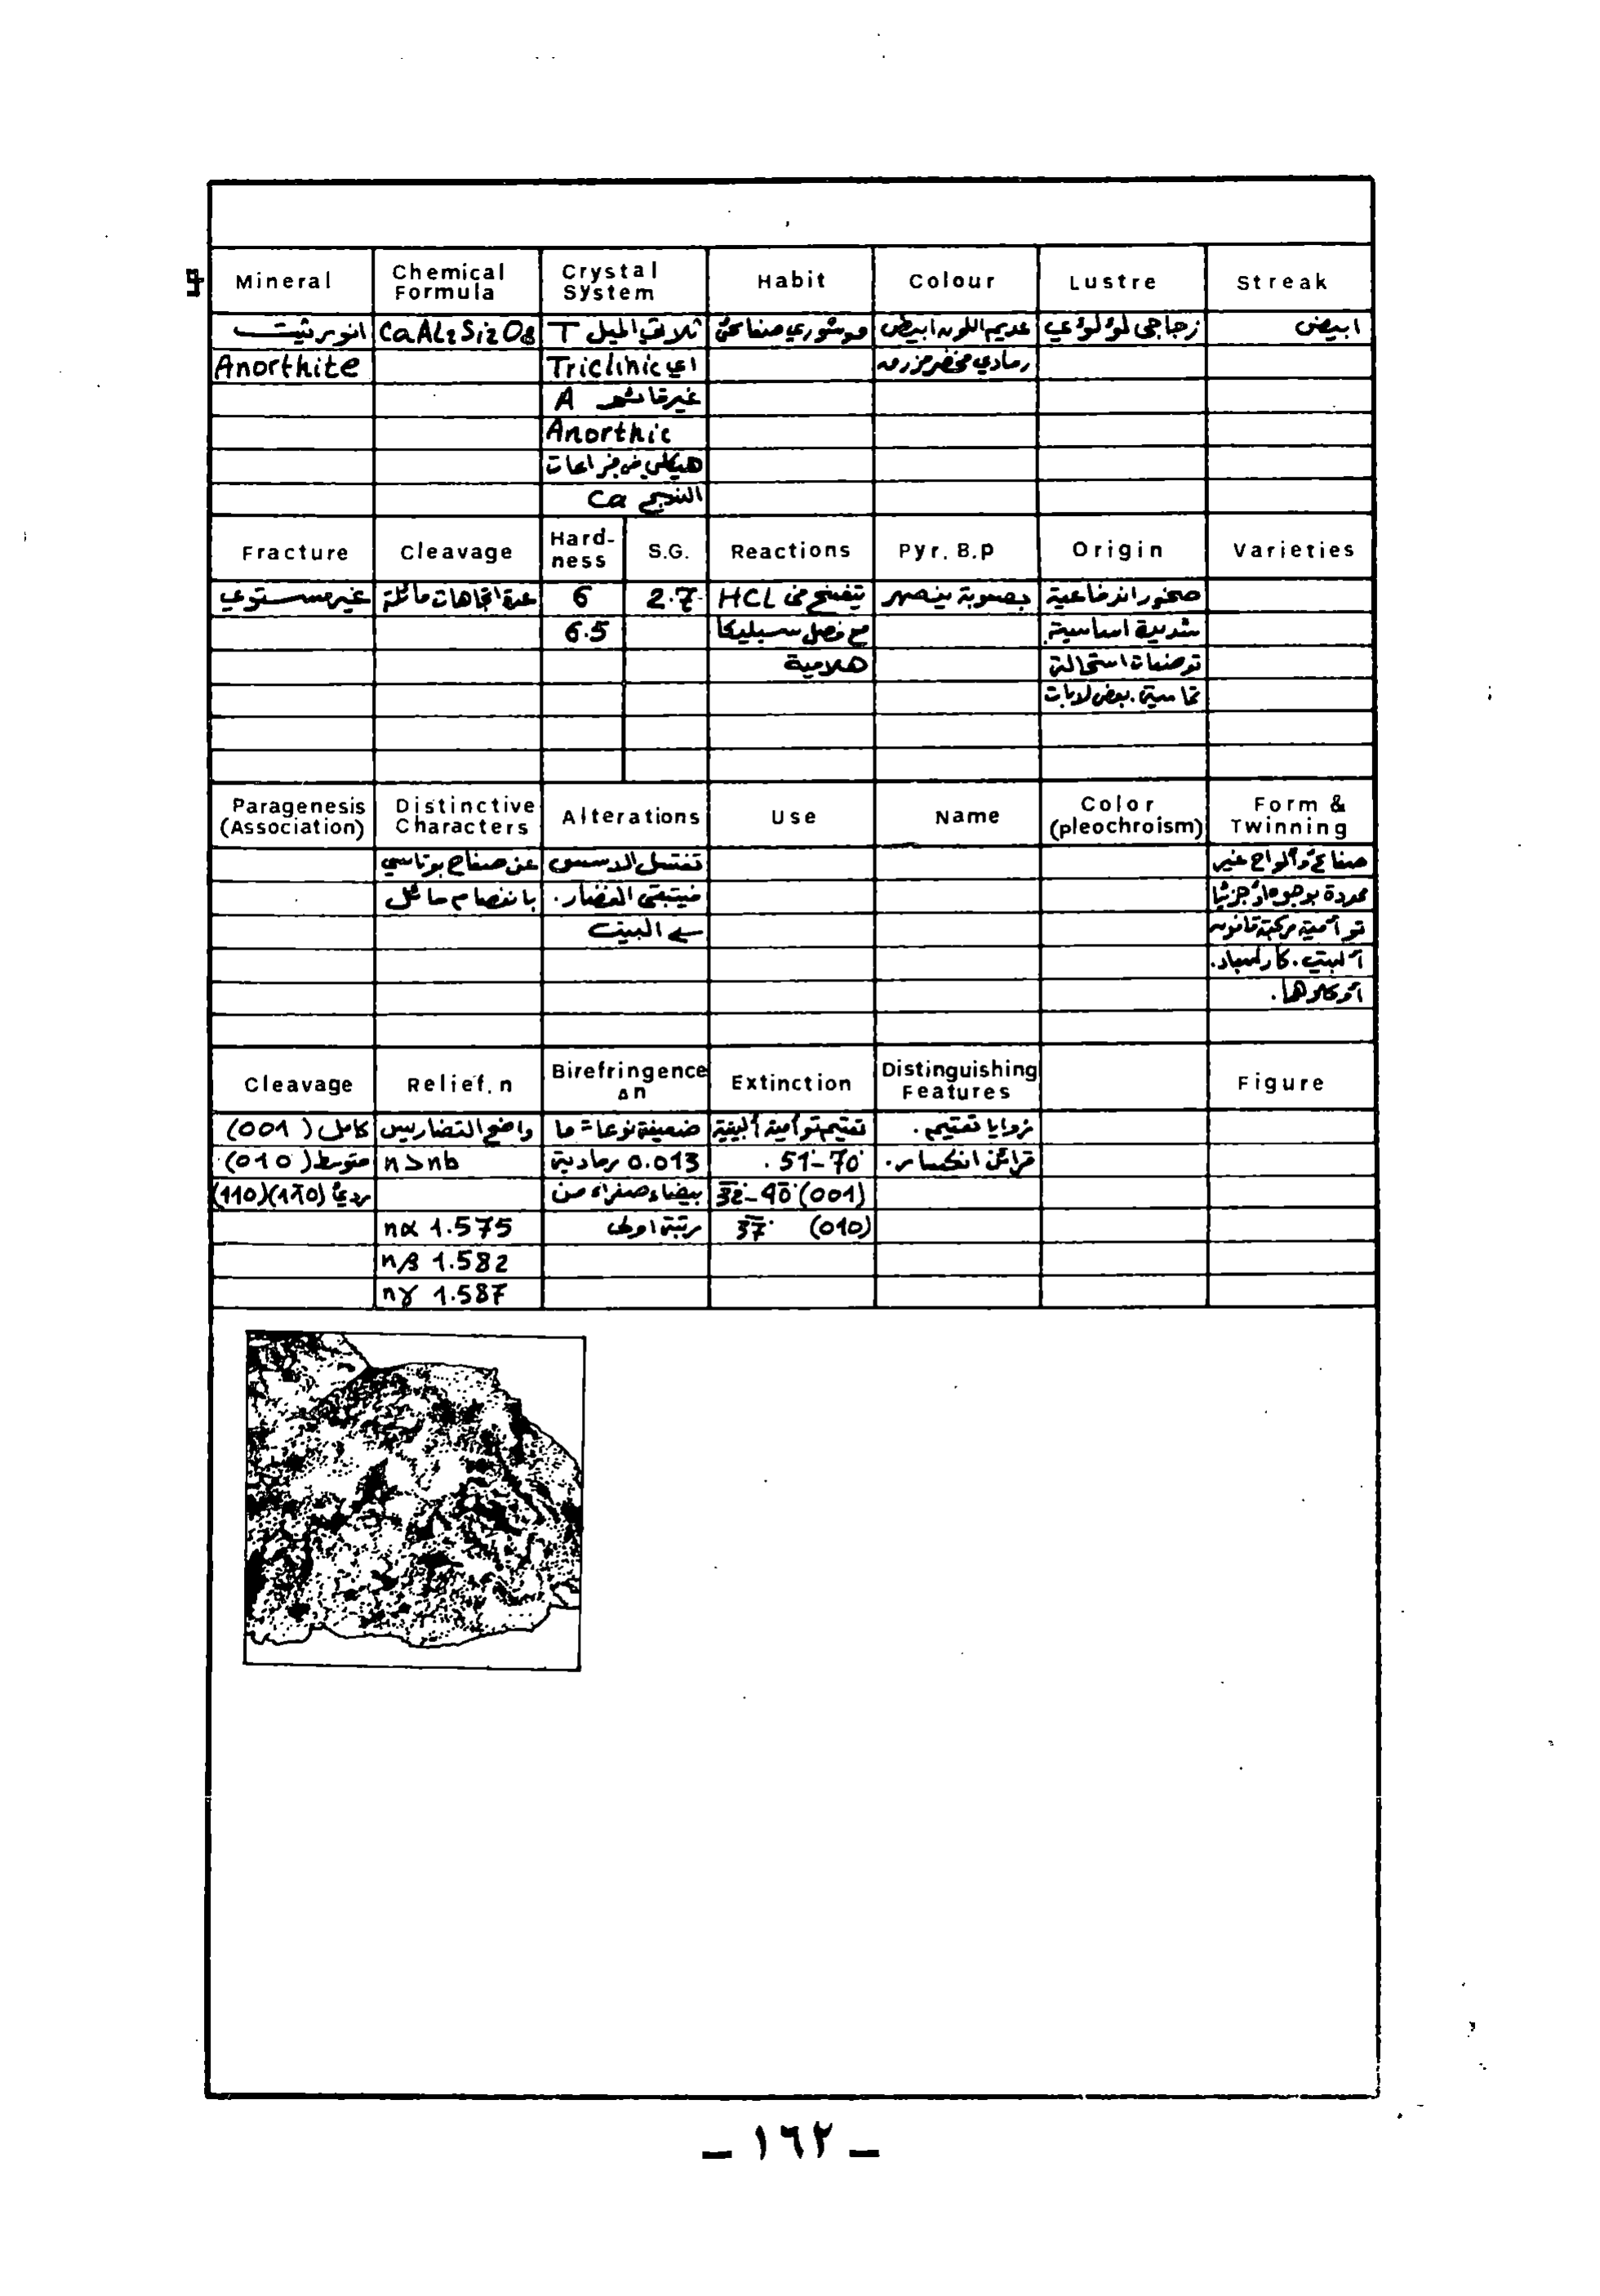 Mineral
Chemical Formula
Crystal System
Habit
Colour
Lustre
Streak
انورثيت CaAl2Si2O8 ثلاثي الميل T موشوري صفائحي عديم اللون ابيض زجاجي لؤلؤي ابيض
Anorthite Triclinic اي رمادي مخضر مزرق
غير قائم A
Anorthic
هيكلي فراغات
Ca
Fracture
Cleavage
Hardness
S.G.
Reactions
Pyr. B.p
Origin
Varieties
غير مستوي عدة اتجاهات مائلة 6 2.7 يتفسخ في HCL بصعوبة ينصهر صخور اندفاعية
6.5 مع فصل سيليكا شديدة اساسية
هلامية توضعات استحالة
تماسية. بعض لابات
Paragenesis (Association)
Distinctive Characters
Alterations
Use
Name
Color (pleochroism)
Form & Twinning
عن صفاح بوتاسي صفائح وألواح غير
بانفصام مائل الغضار. محددة بوجوه
توأمية مركبة قانون
ألبيت. كارلسباد.
Cleavage
Relief. n
Birefringence Δn
Extinction
Distinguishing Features
Figure
كامل (001) واضح التضاريس ضعيفة نوعاً ما تعتيم توأمية ألبيتية زوايا تعتيم.
متوسط (010) n>nb 0.013 رمادية 51-70 قرائن انكسار.
رديئ (110)(1̄10) بيضاء صفراء من 32-90 (001)
nα 1.575 رتبة اولى 37 (010)
nβ 1.582
nγ 1.587
– ١٦٢ –